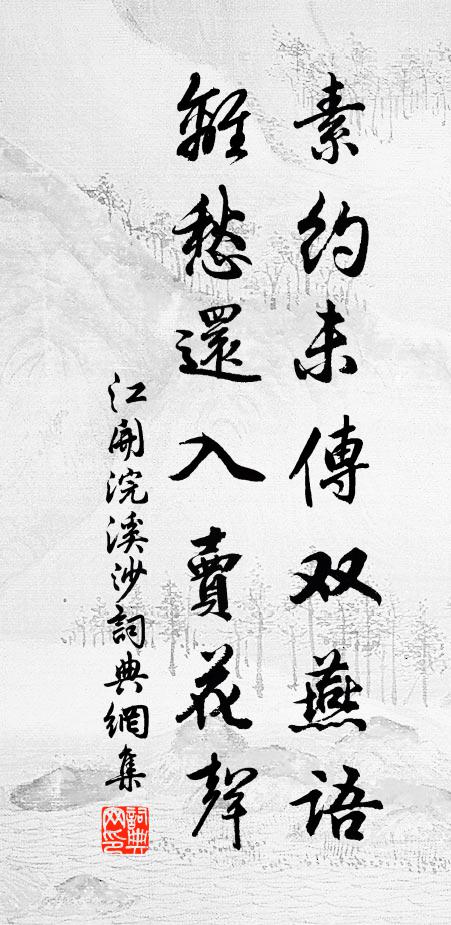 素約未傳双燕語
離愁還入賣花聲
江開浣溪沙詞典網集
詞典网印